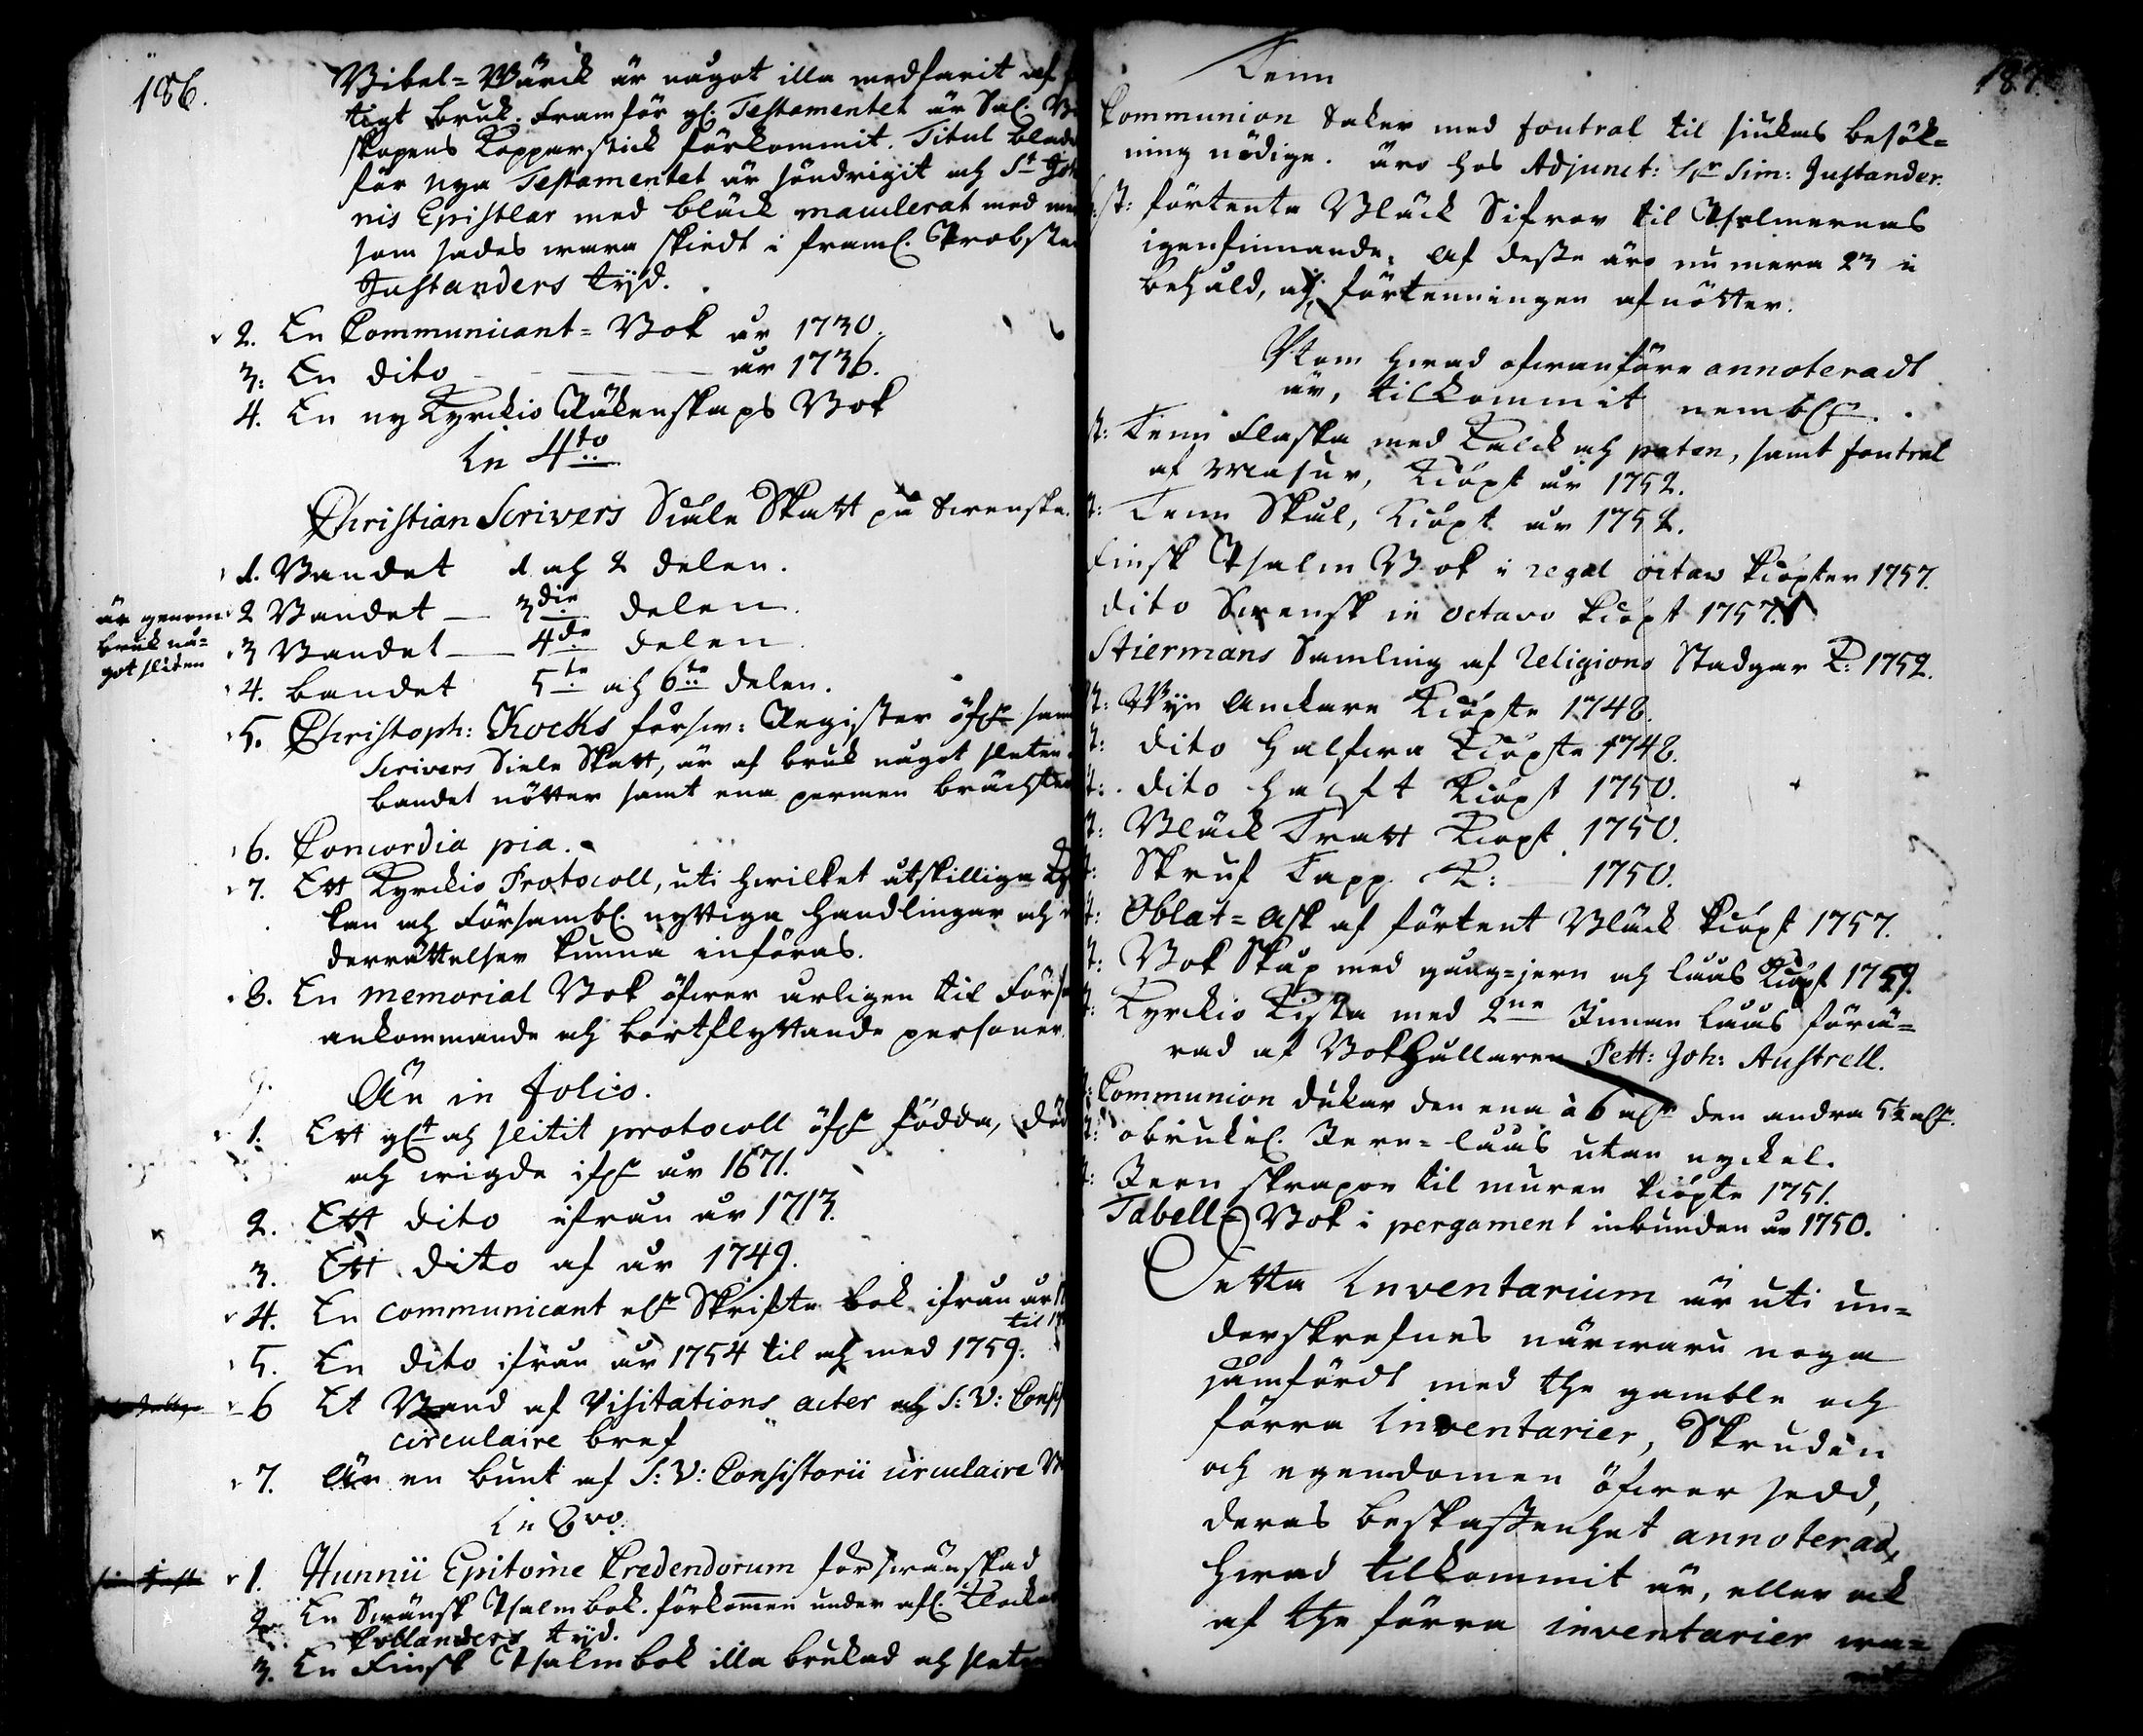 186.
Bibel=Wärck är något illa medfarit af
tigt bruk. framför gl: Testamentet är Sal.
skapens Kopparstick förkommit. Titul bladet
för Nya Testamentet är söndrigit och St Joh
nis Epistlar med bläck maculerat med
som sades wara skiedt i framl. Probsten
Justanders tijd.
2. En Communicant=Bok år 1730.
3: En dito — — år 1736.
4. En ny Kyrckio Räkenskaps Bok
In 4to
Christian Scrivers Siäle Skatt på Swenska.
1. Bandet 1 och 2 delen.
är genom
bruk nå=
got sliten
2 Bandet — 3die delen.
3 Bandet — 4de delen
4. bandet 5te och 6te delen.
5. Christoph: Kocks försw: Register öfwer
Scrivers Siele Skatt, är af bruk något sleten
bandet nötter samt ena permen bräckter
6. Concordia pia.
7. Ett Kyrckio Protocoll, uti hwilket åtskillige
kan och Försambl. nyttiga handlingar och
derrättelser kunna införas.
8. En memorial Bok öfwer årligen til Förs
ankommande och bortflyttande personer.
9. Än in folio.
1. Ett glt och slitit protocoll öfwer födda, död
och wigde ifrån år 1671.
2. Ett dito ifrån år 1713.
3. Ett dito af år 1749.
4. En communicant eller Skrifte bok ifrån år
til
5. En dito ifrån år 1754 til och med 1759.
6 Et Band af Visitations acter och S: V: Cons
circulaire bref
7. Än en bunt af S: V: Consistorii circulaire
In 8vo.
1. Hunnii Epitome Credendorum förswänskad
2. En Swänsk Psalmbok. förkommen under afl. Klockar
Pollanders tijd.
3. En Finsk Psalmbok illa brukad och sleten
187.
Tenn
Communion Saker med foutral til siukas besök=
ning nödige. äro hos Adjunct: Hr Sim: Justander.
st: förtente Bläck Sifror til Psalmernas
igenfinnande, af desse äro nu mera 23 i
behåld, och förtenningen afnötter.
Utom hwad ofwanföre annoteradt
är, tilkommit nembl.
st: Tenn Flaska med Kalck och paten, samt foutral
af masur, Kiöpt år 1752.
st: Tenn Skål, Kiöpt år 1752.
Finsk Psalm Bok i regal octav kiöpter 1757.
dito Swensk in octavo kiöpt 1757.
Stiermans Samling af Religions Stadgar K: 1752.
st: Wijn Anckare Kiöpte 1748.
st: dito halfwa Kiöpte 1748.
st: dito halft Kiöpt 1750.
st: Bläck Tratt Kiöpt 1750.
st: Skruf Tapp K: — 1750.
st: Oblat=Ask af förtent Bläck kiöpt 1757.
st: Bok Skåp med gång=jern och låås Kiöpt 1759.
st: Kyrckio Kista med 2ne Innan låås förä=
rad af Bokhållaren Pett: Joh: Austrell.
Communion dukar den ena à 6 aln den andra 5½ aln.
st: obrukel. Jern=låås utan nyckel.
st: Jern skrapor til muren kiöpte 1751.
Tabell=Bok i pergament inbunden år 1750.
Detta Inventarium är uti un=
derskrefnes närwaru noga
jämfördt med the gamble och
förra Inventarier, Skruden
och egendomen öfwer sedd,
deras beskaffenhet annoterad,
hwad tilkommit är, eller ock
af the förra inventarier wa=